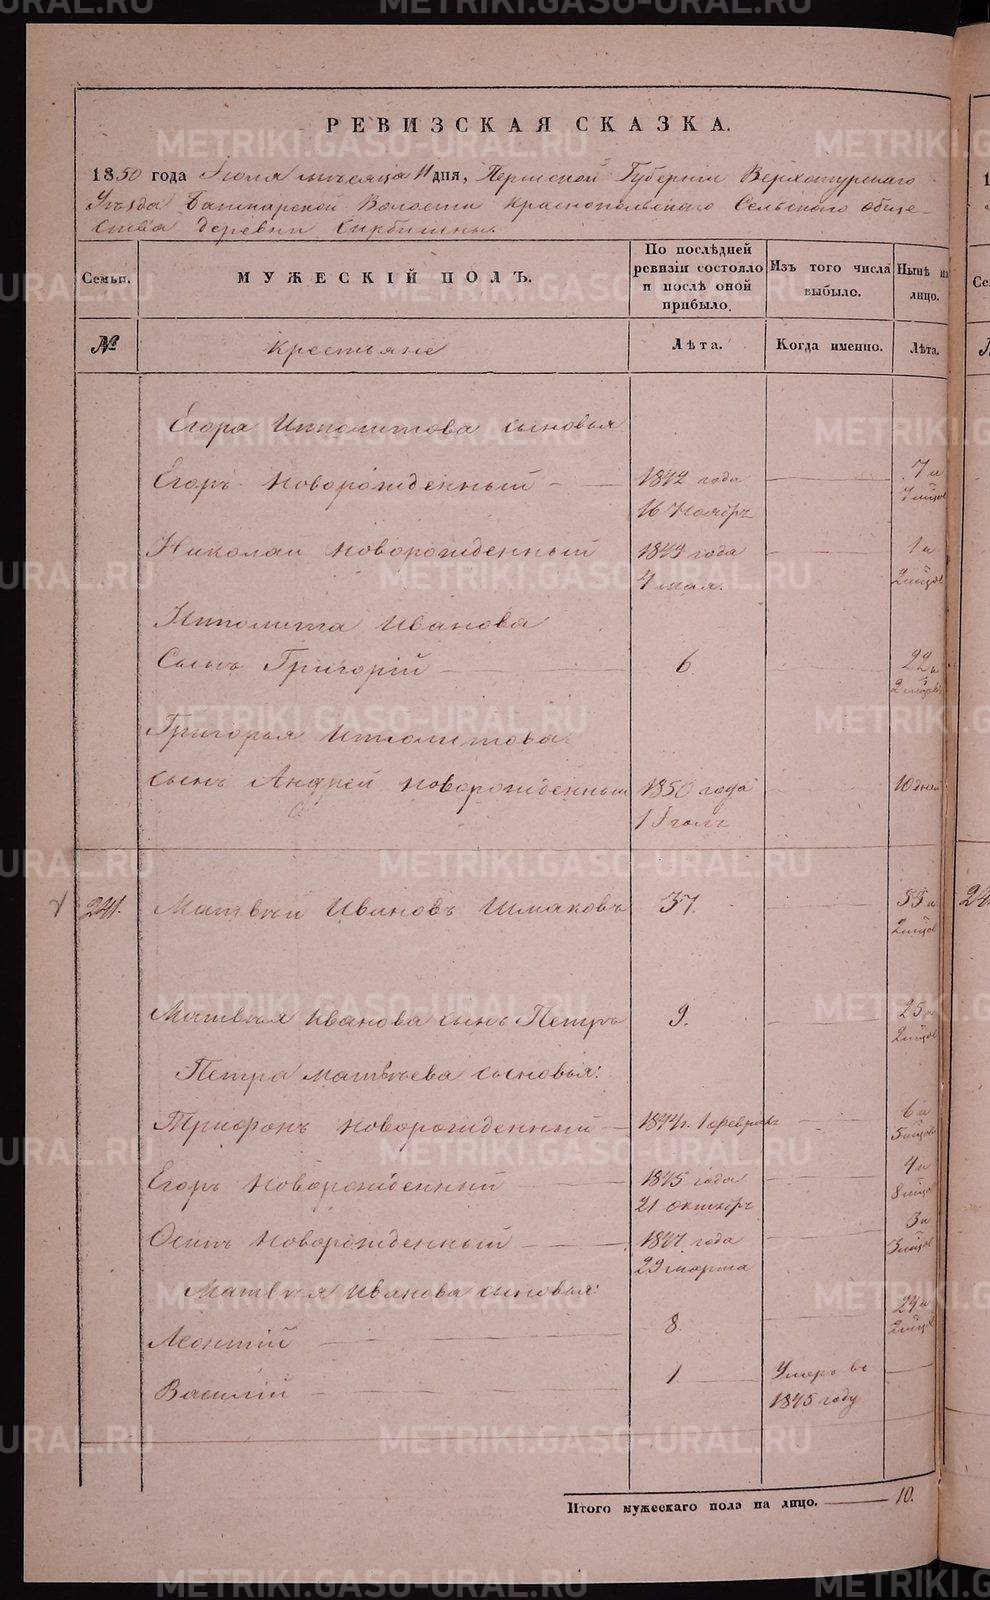 РЕВИЗСКАЯ СКАЗКА.
1850 года Іюля мѣсяца 11 дня, Пермской Губерніи Верхотурскаго
Уѣзда Башкарской Волости Краснопольскаго Сельскаго обще-
ства деревни
Семьи.
МУЖЕСКІЙ ПОЛЪ.
По послѣдней ревизіи состояло и послѣ оной прибыло.
Изъ того числа выбыло.
Нынѣ на лицо.
№
Крестьяне
Лѣта.
Когда именно.
Лѣта.
Егора Ипполитова сыновья
Егоръ новорожденный 1842 года 7 и
16 Ноябр. 7 мѣцов
Николай новорожденный 1849 года 1 и
4 мая. 2 мѣцов
Ипполита Иванова
Сынъ Григорій 6 22 и
2 мѣцов
Григорья Ипполитова
сынъ Андрей новорожденный 1850 года 10 дней
1 Іюля
241. Матвѣй Ивановъ Шмаковъ 37. 55 и
2 мѣцов
Матвѣя Иванова сынъ Петръ 9. 25 и
2 мѣцов
Петра Матвѣева сыновья:
Трифонъ новорожденный 1844 г. 1 февраля 6 и
5 мѣцов
Егоръ новорожденный 1845 года 4 и
21 октябр. 8 мѣцов
Осипъ новорожденный 1847 года 3 и
23 марта 3 мѣцов
Матвѣя Иванова сыновья:
Леонтій 8. 24 и
2 мѣцов
Василій 1 Умеръ въ
1845 году
Итого мужескаго пола на лицо. 10.
METRIKI.GASO-URAL.RU